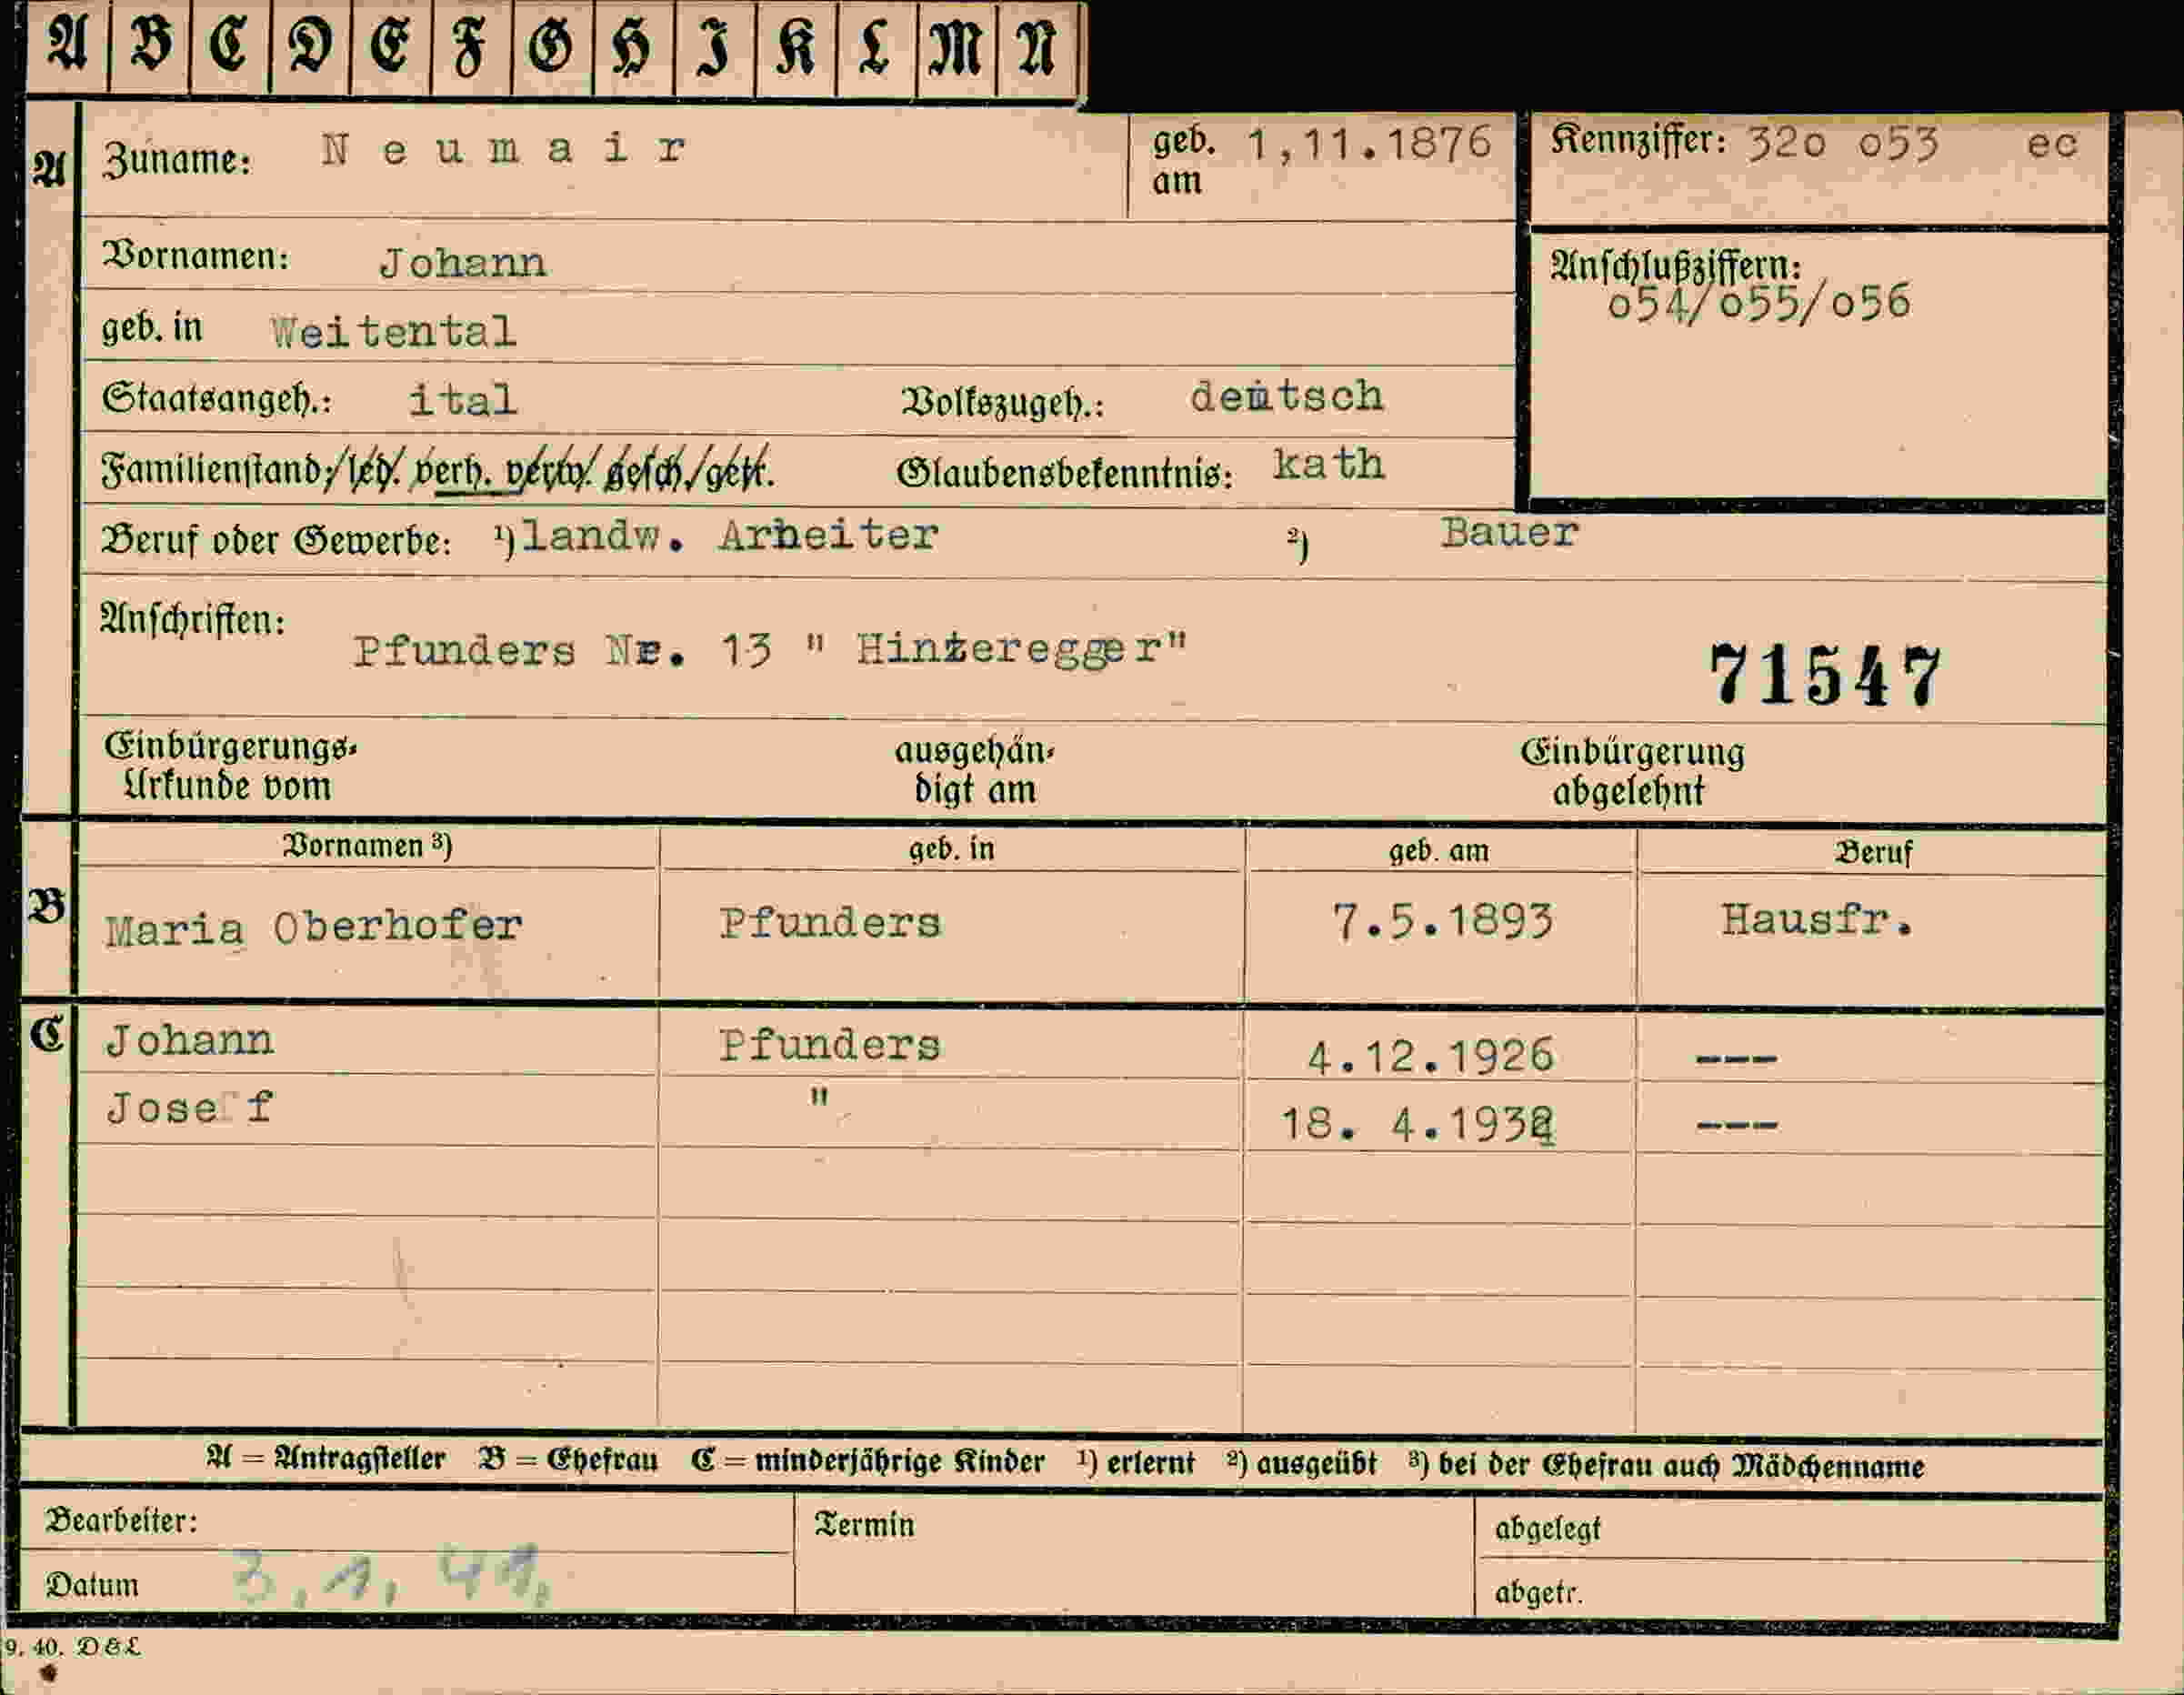 A B C D E F G H I K L M N
A Zuname: Neumair geb. am 1,11.1876 Kennziffer: 32o o53 ec
Vornamen: Johann Anschlußziffern: o54/o55/o56
geb. in Weitental
Staatsangeh.: ital Volkszugeh.: deutsch
Familienstand: led. verh. verw. gesch. getr. Glaubensbekenntnis: kath
Beruf oder Gewerbe: ¹) landw. Arheiter ²) Bauer
Anschriften: Pfunders Nr. 13 " Hinteregger" 71547
Einbürgerungs-Urkunde vom ausgehändigt am Einbürgerung abgelehnt
Vornamen ³) geb. in geb. am Beruf
B Maria Oberhofer Pfunders 7.5.1893 Hausfr.
C Johann Pfunders 4.12.1926 ---
Josef " 18. 4. ---
A = Antragsteller B = Ehefrau C = minderjährige Kinder ¹) erlernt ²) ausgeübt ³) bei der Ehefrau auch Mädchenname
Bearbeiter: Termin abgelegt
Datum 3.1.41. abgetr.
9. 40. D&L